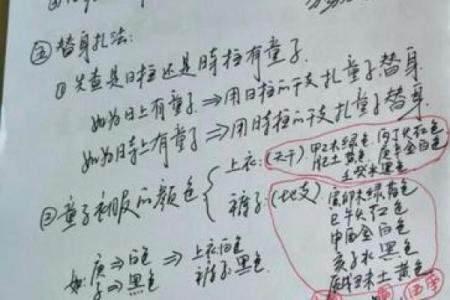 ⑤替身扎法:
①先查是日柱还是时柱有童子.
如为日上有童子⇒用日柱的干支扎童子替身
如为时上有童子⇒用时柱的干支扎童子替身.
②童子衣服的颜色
上衣:(天干).甲乙木绿色.丙丁火红色
戊己土黄色.庚辛金白色
壬癸水黑色
裤子:(地支)寅卯木绿色
巳午火红色
申酉金白色
亥子水黑色
辰戌丑未土黄色
如:庚⇒白色⇒上衣白色
子⇒黑色 裤子黑色